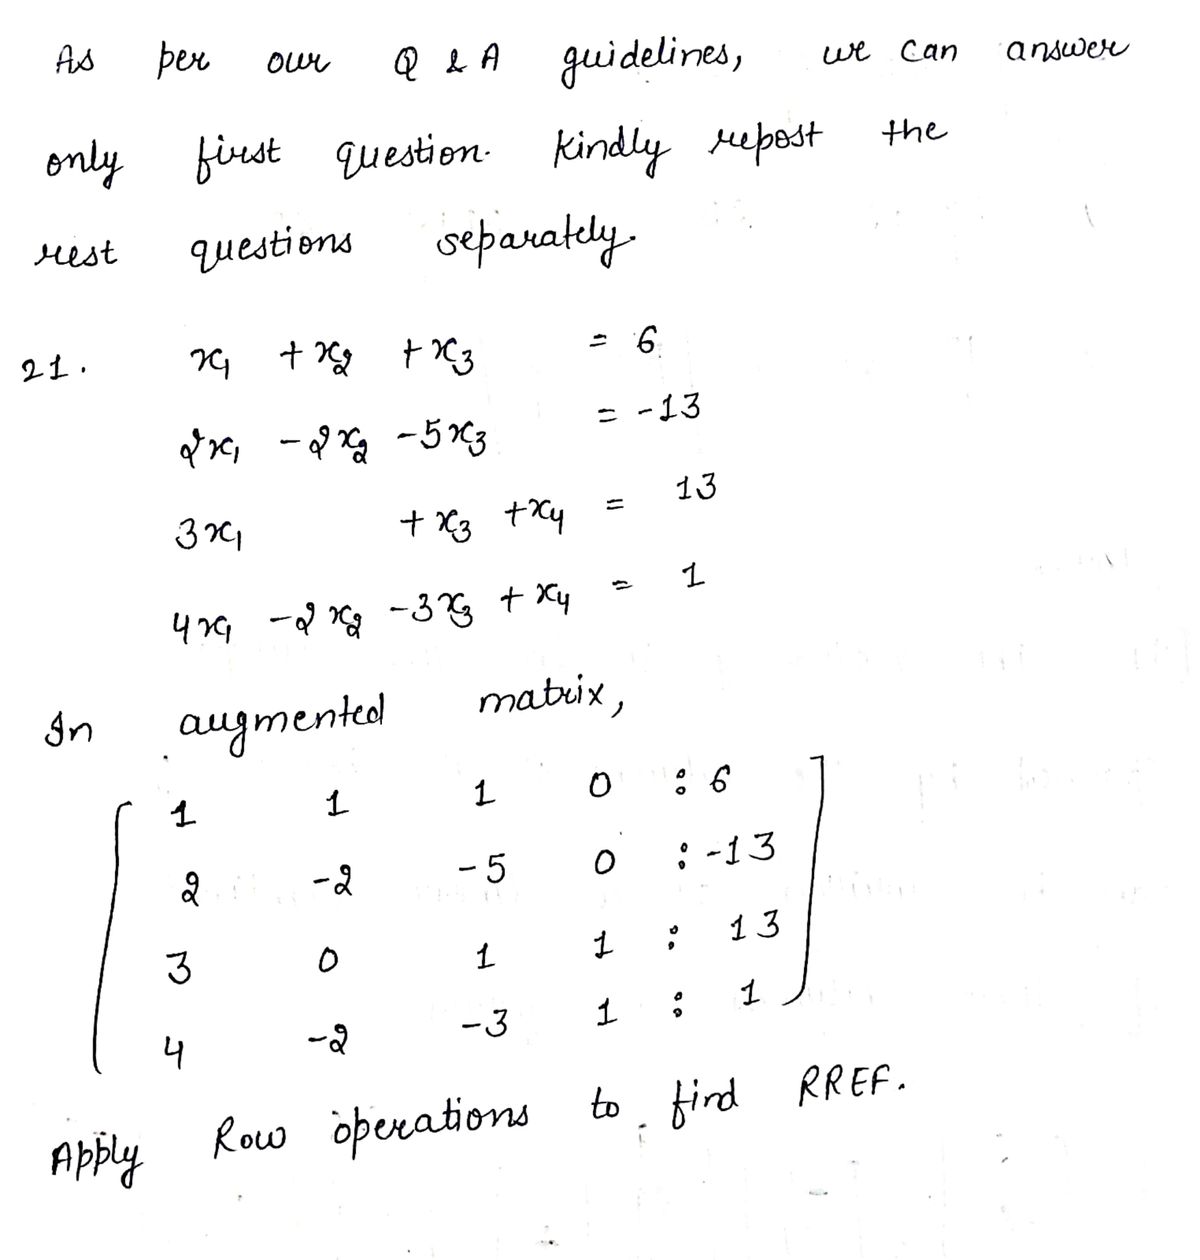 As per our Q & A guidelines, we can answer
only first question. Kindly repost the
rest questions separately.
21. x₁ + x₂ + x₃ = 6
2x₁ - 2x₂ - 5x₃ = -13
3x₁ + x₃ + x₄ = 13
4x₁ - 2x₂ - 3x₃ + x₄ = 1
In augmented matrix,
1 1 1 0 : 6
2 -2 -5 0 : -13
3 0 1 1 : 13
4 -2 -3 1 : 1
Apply Row operations to find RREF.